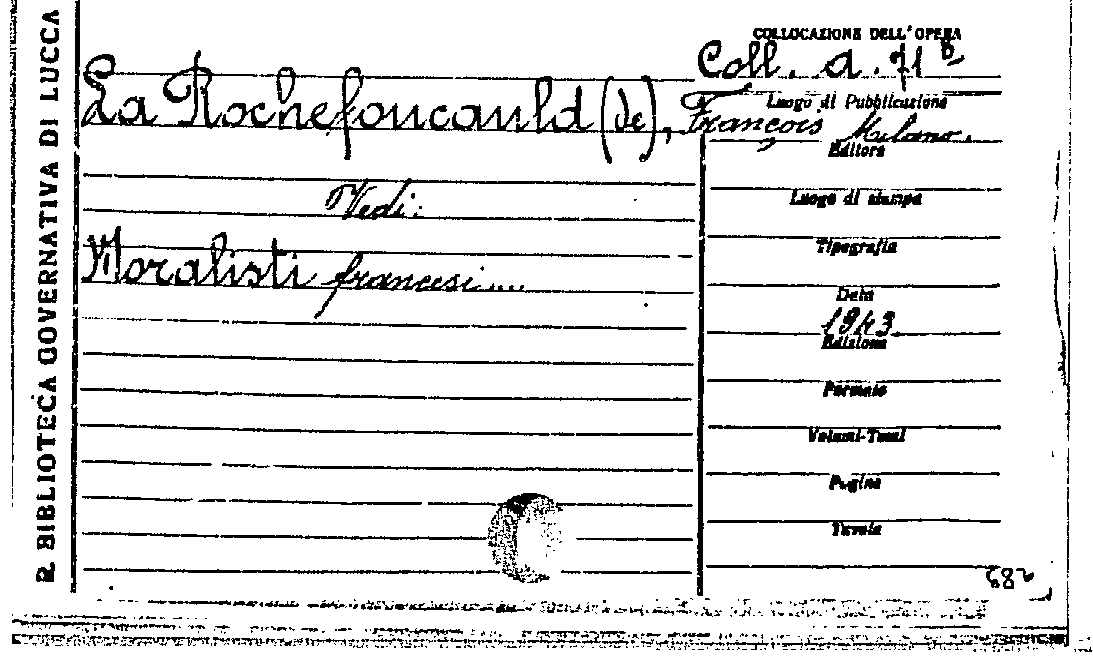 R. BIBLIOTECA GOVERNATIVA DI LUCCA
COLLOCAZIONE DELL'OPERA
Coll. a. 71 B
La Rochefoucauld (de), François
Luogo di Pubblicazione
Milano.
Editore
Vedi:
Luogo di stampa
Moralisti francesi....
Tipografia
Data
1943
Edizione
Formato
Volumi-Tomi
Pagine
Tavole